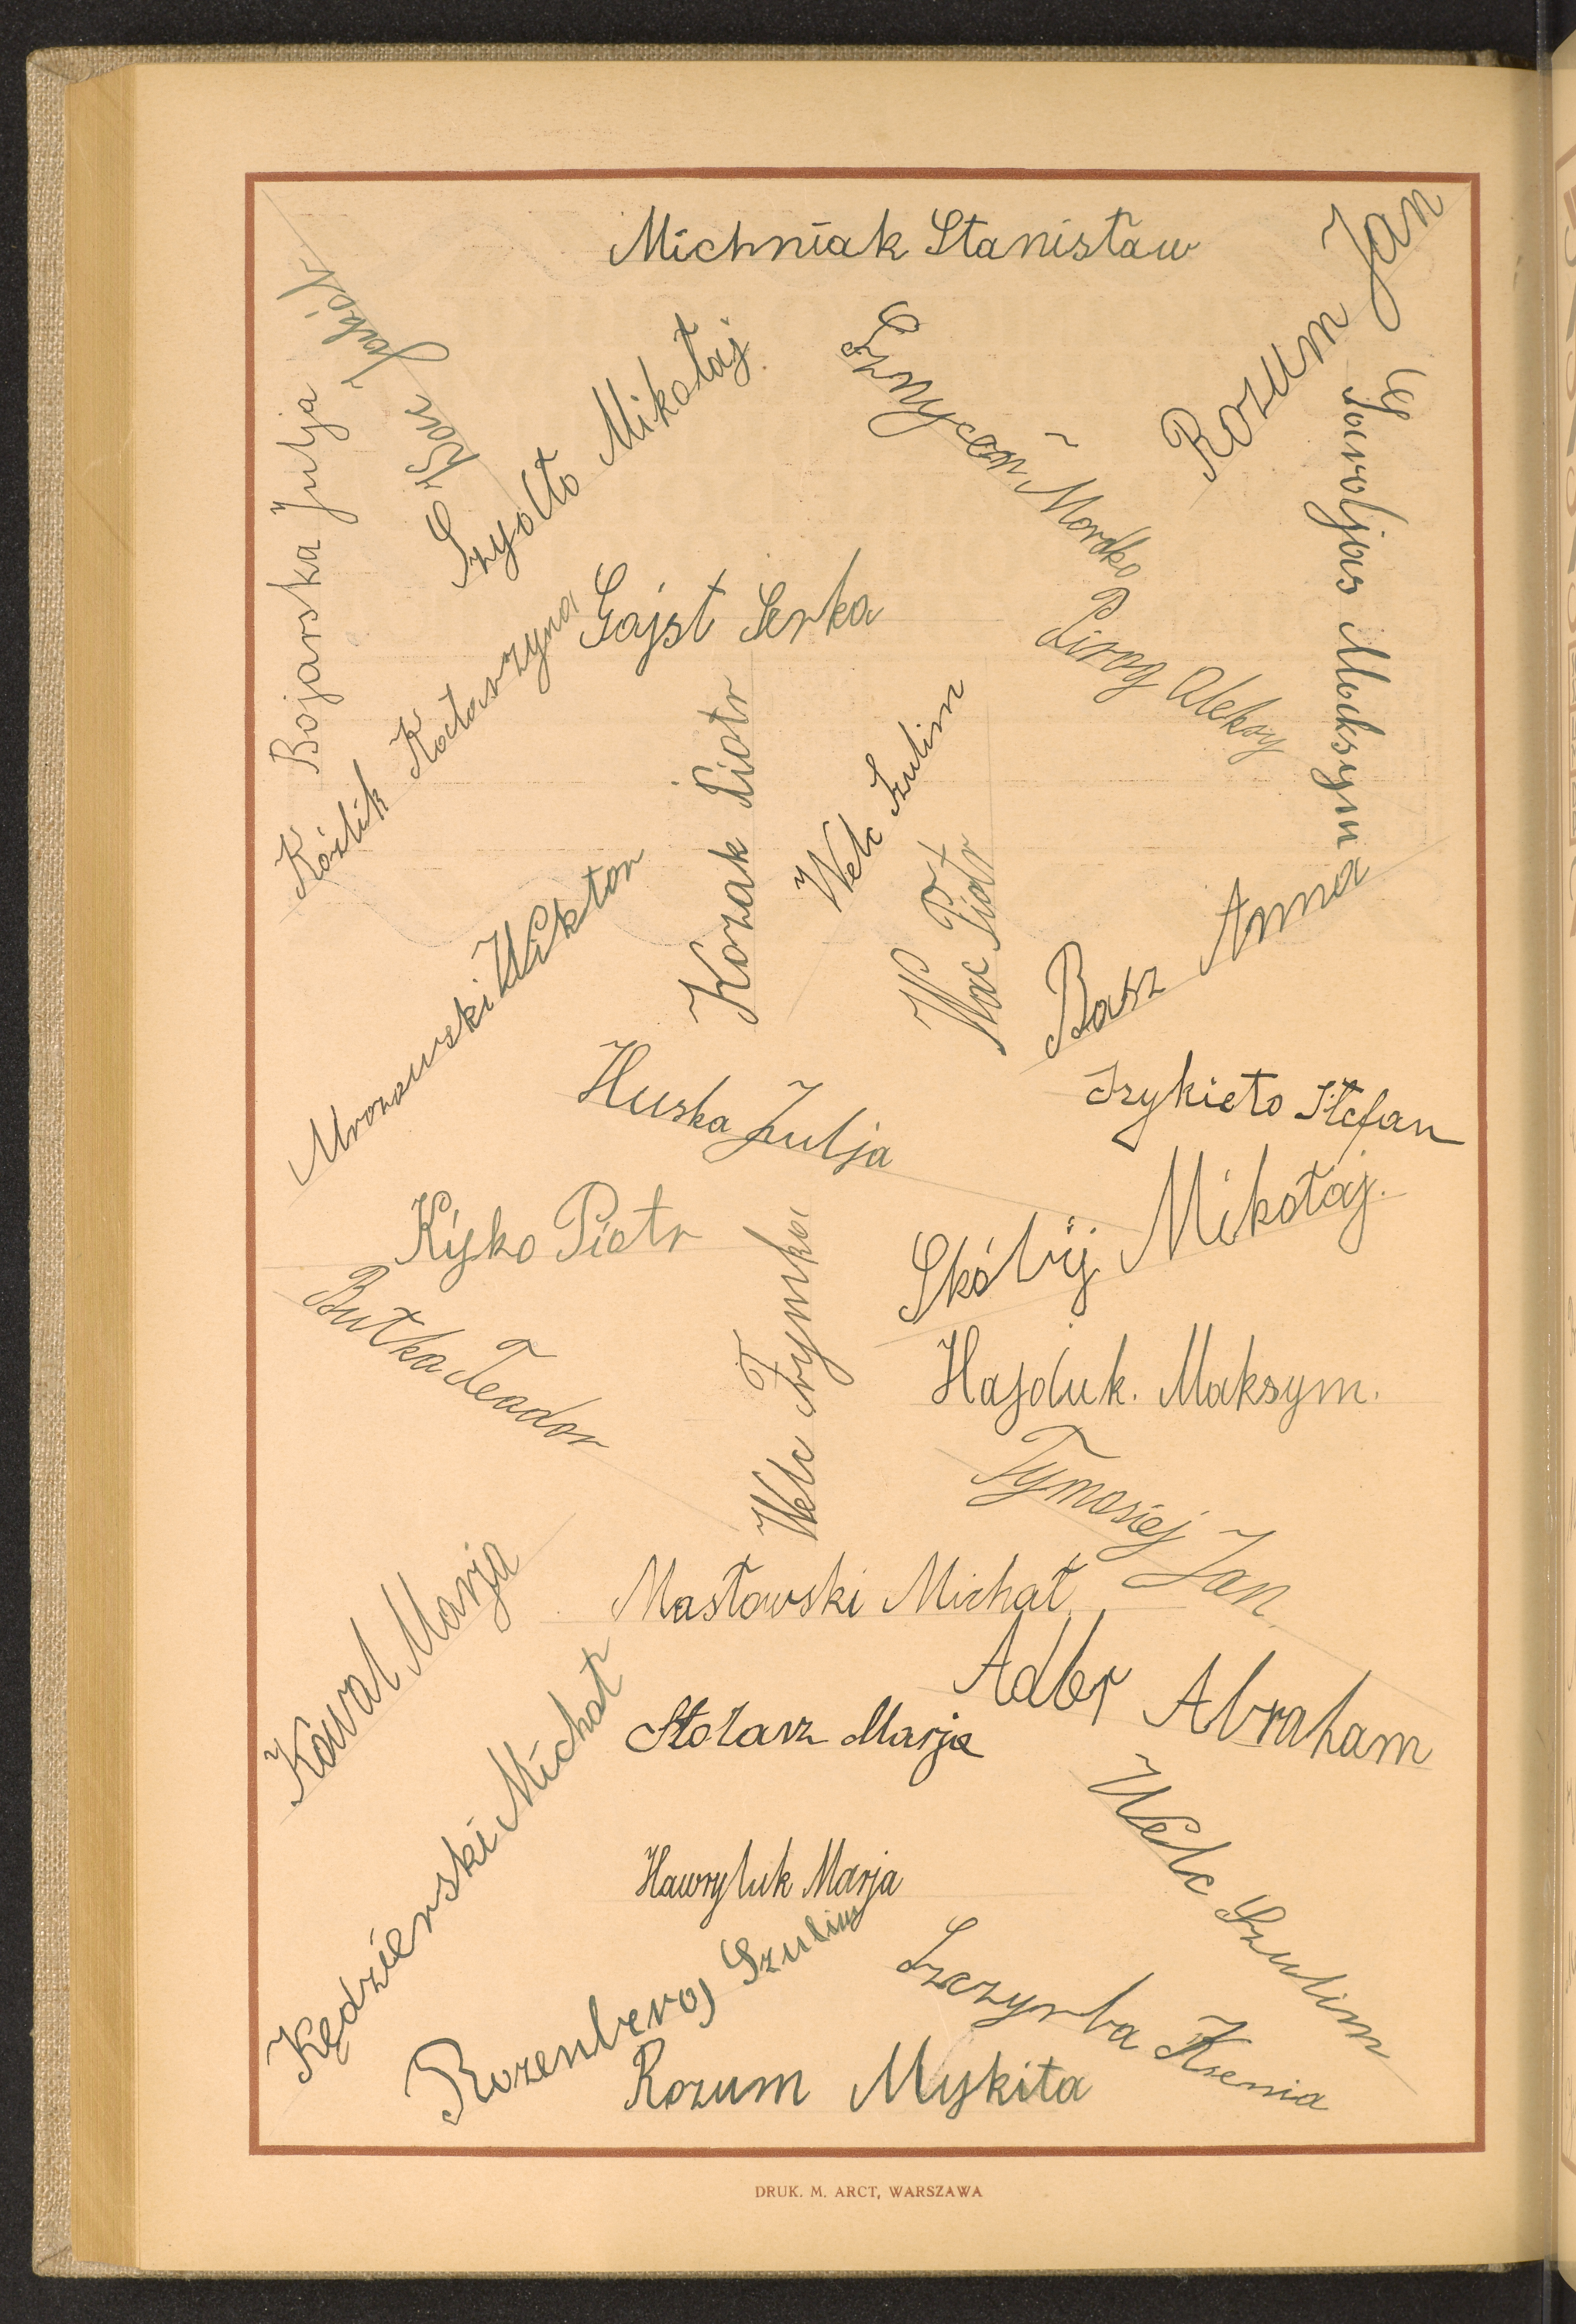 Michniak Stanisław
Rozum Jan
Bojarska Julja
Szyołto Mikołaj
Mordko
Maksym
Gajst Serka
Piróg Aleksy
Koźlik Katarzyna
Kozak Piotr
Welc Szulim
Wac Piotr
Basz Anna
Mrozowski Wiktor
Huska Julja
Szykieto Stefan
Kýsko Piotr
Skóbij Mikołaj.
Butka Teador
Welc Frymka
Hajduk. Maksym.
Tymosiej Jan.
Kowal Marja
Masłowski Michał
Adler Abraham
Kędzierski Michał
Stolarz Marja
Welc Szulim
Hawryluk Marja
Rozenberg Szulim
Szczyrba Ksenia
Rozum Mykita
DRUK. M. ARCT, WARSZAWA